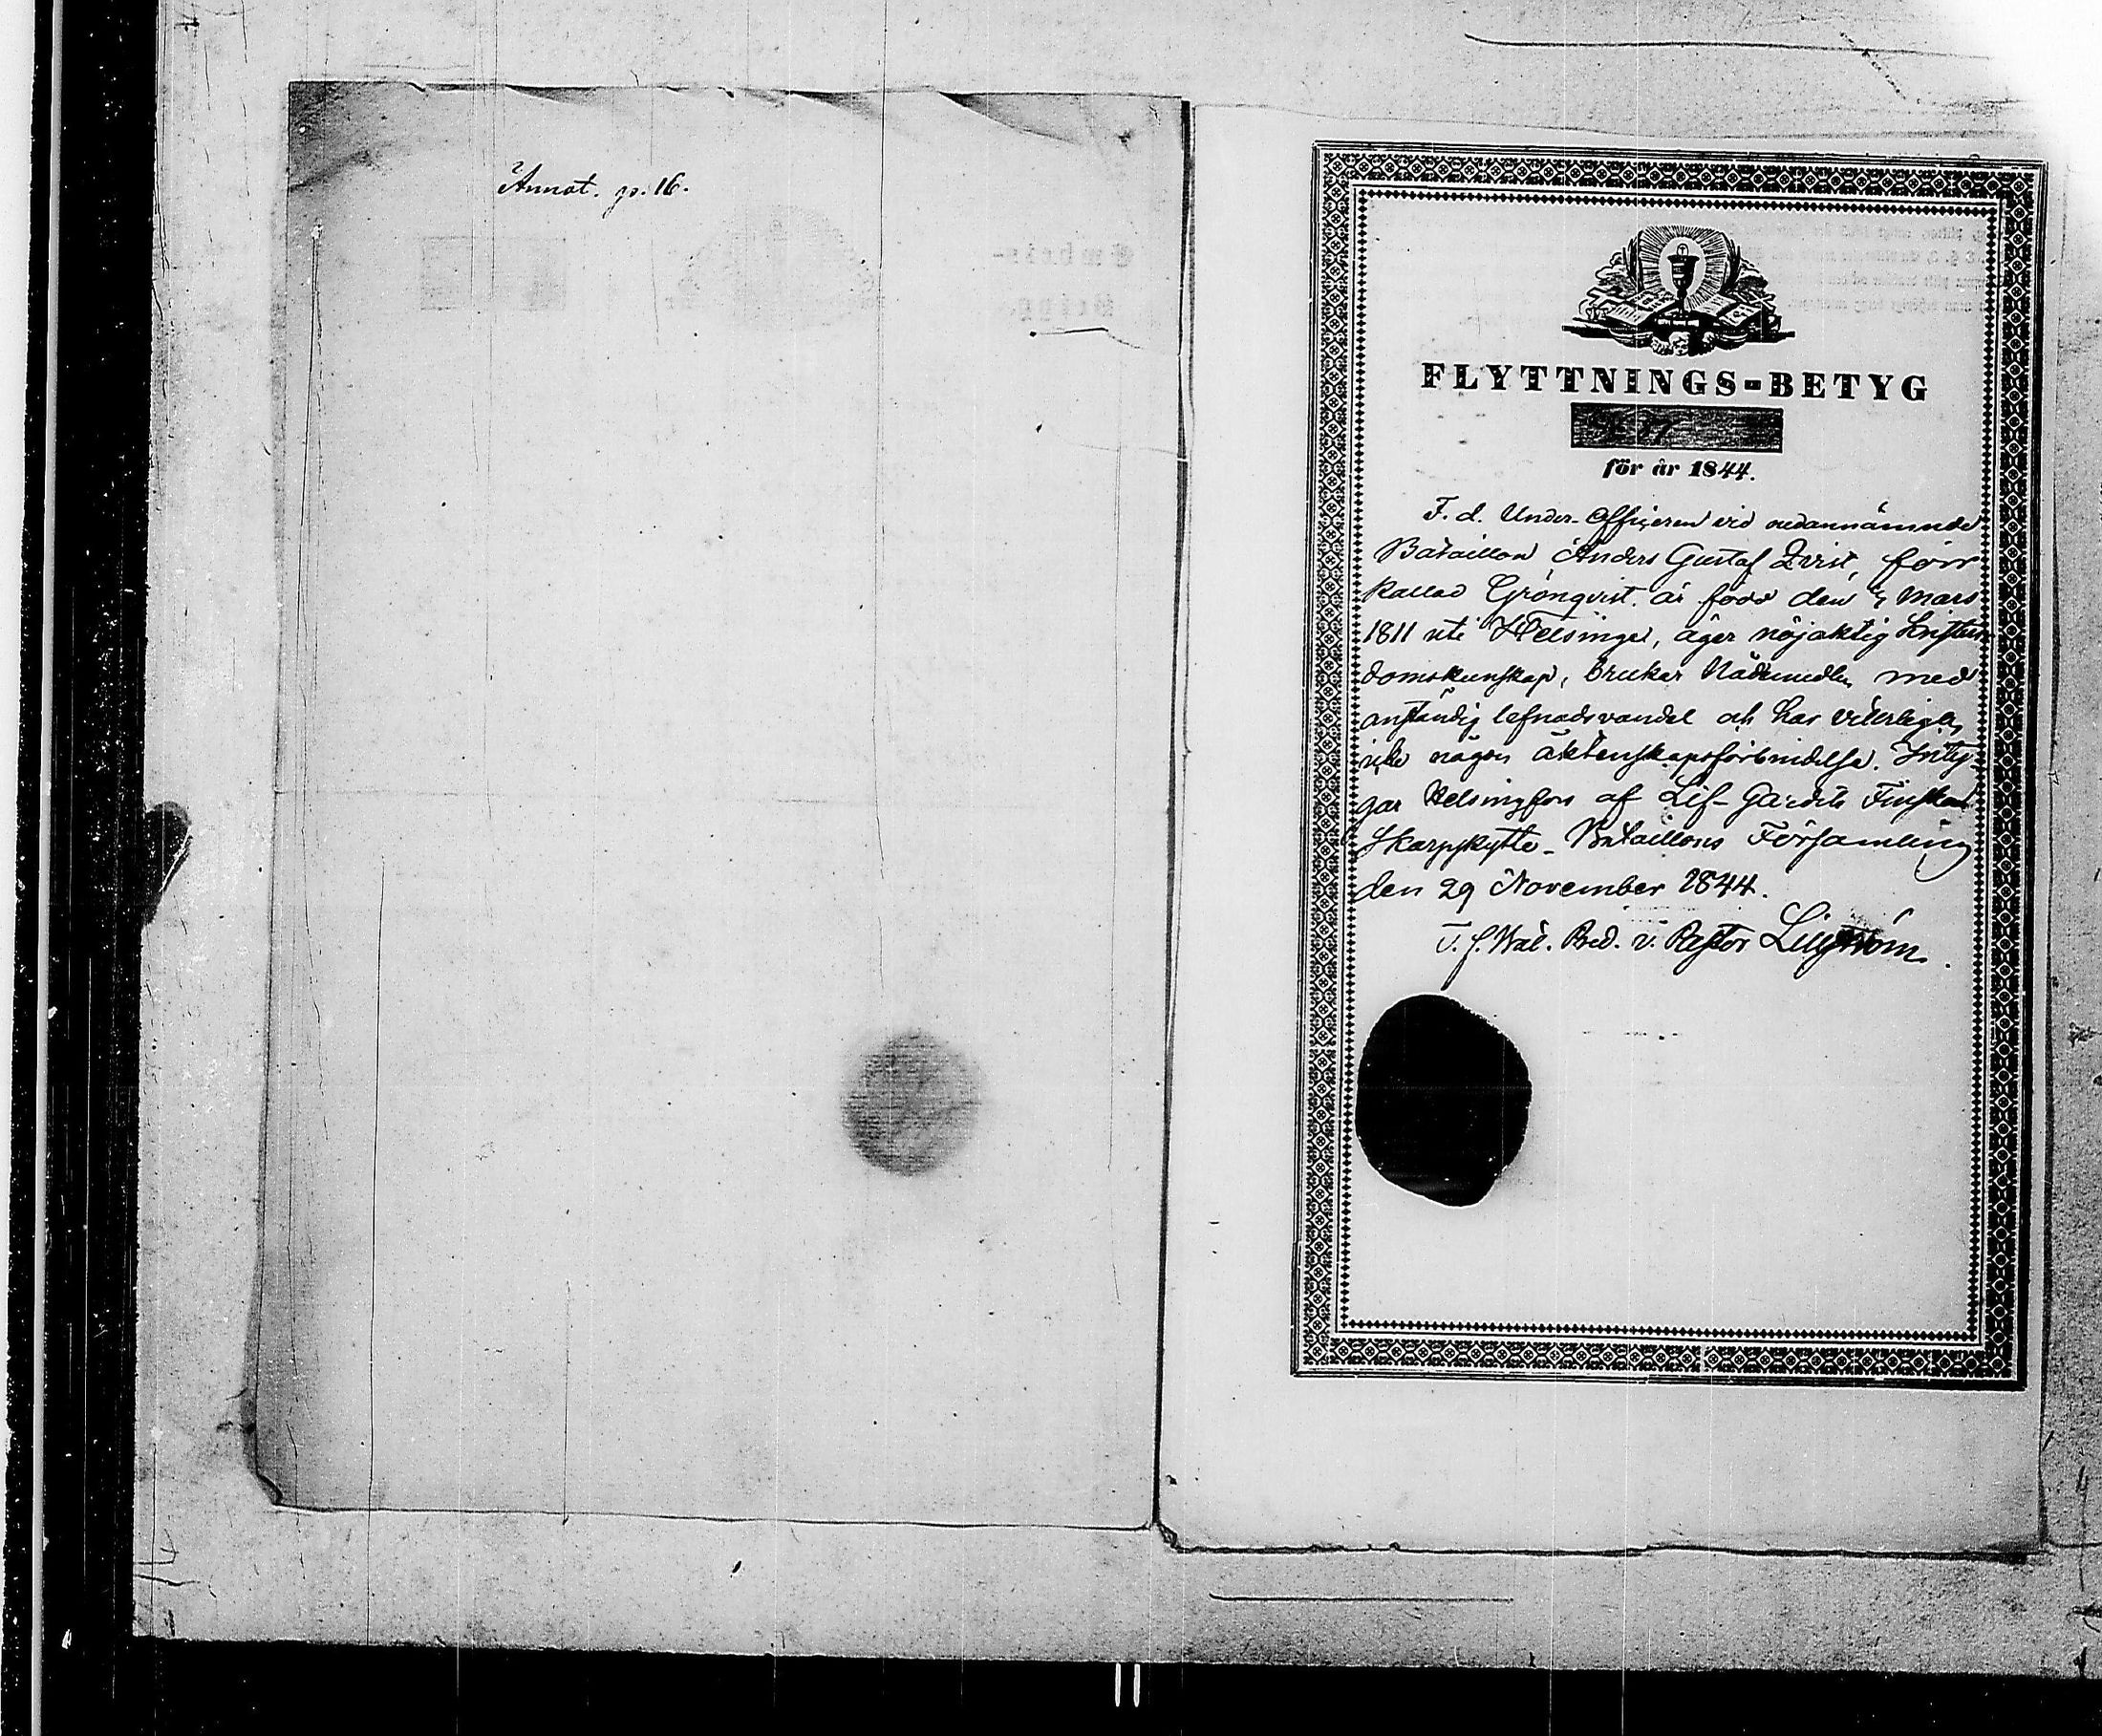 Annot. p. 16.
FLYTTNINGS-BETYG
för år 1844.
F. d. Under-Officeren vid nedannämnde
Bataillon Anders Gustaf Qvist, förr
kallad Grönqvist, är född den 7 Mars
1811 uti Helsinge, äger nöjaktig kristen-
domskunskap, brukar Nådemedlen med
anständig lefnadsvandel och har veterligen
icke någon äktenskapsförbindelse. Inty-
gar Helsingfors af Lif-Gardets Finska
Skarpskytte-Bataillons Församling
den 29 November 1844.
T. f. Bat. Pred. v. Pastor